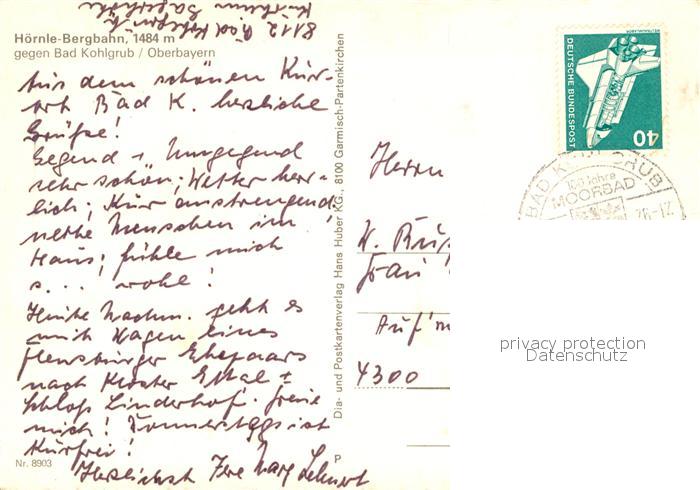 8112 Bad Kohlgrub
Kurheim
Hörnle-Bergbahn, 1484 m
gegen Bad Kohlgrub / Oberbayern
Aus dem schönen Kur-
ort Bad K. herzliche
Grüße!
Gegend u. Umgegend
sehr schön; Wetter herr-
lich; Kur anstrengend;
nette Menschen im
Haus; fühle mich
s... wohl!
Heute Nachm. geht es
mit Wagen eines
Flensburger Ehepaars
nach Kloster Ettal +
Schloß Linderhof. Freue
mich! Donnerstags ist
kurfrei!
Herzlichst Ihre
Nr. 8903
P
Dia- und Postkartenverlag Hans Huber KG., 8100 Garmisch-Partenkirchen
DEUTSCHE BUNDESPOST
40
BAD KOHLGRUB
100 Jahre
MOORBAD
Herrn
Frau
4300
privacy protection
Datenschutz